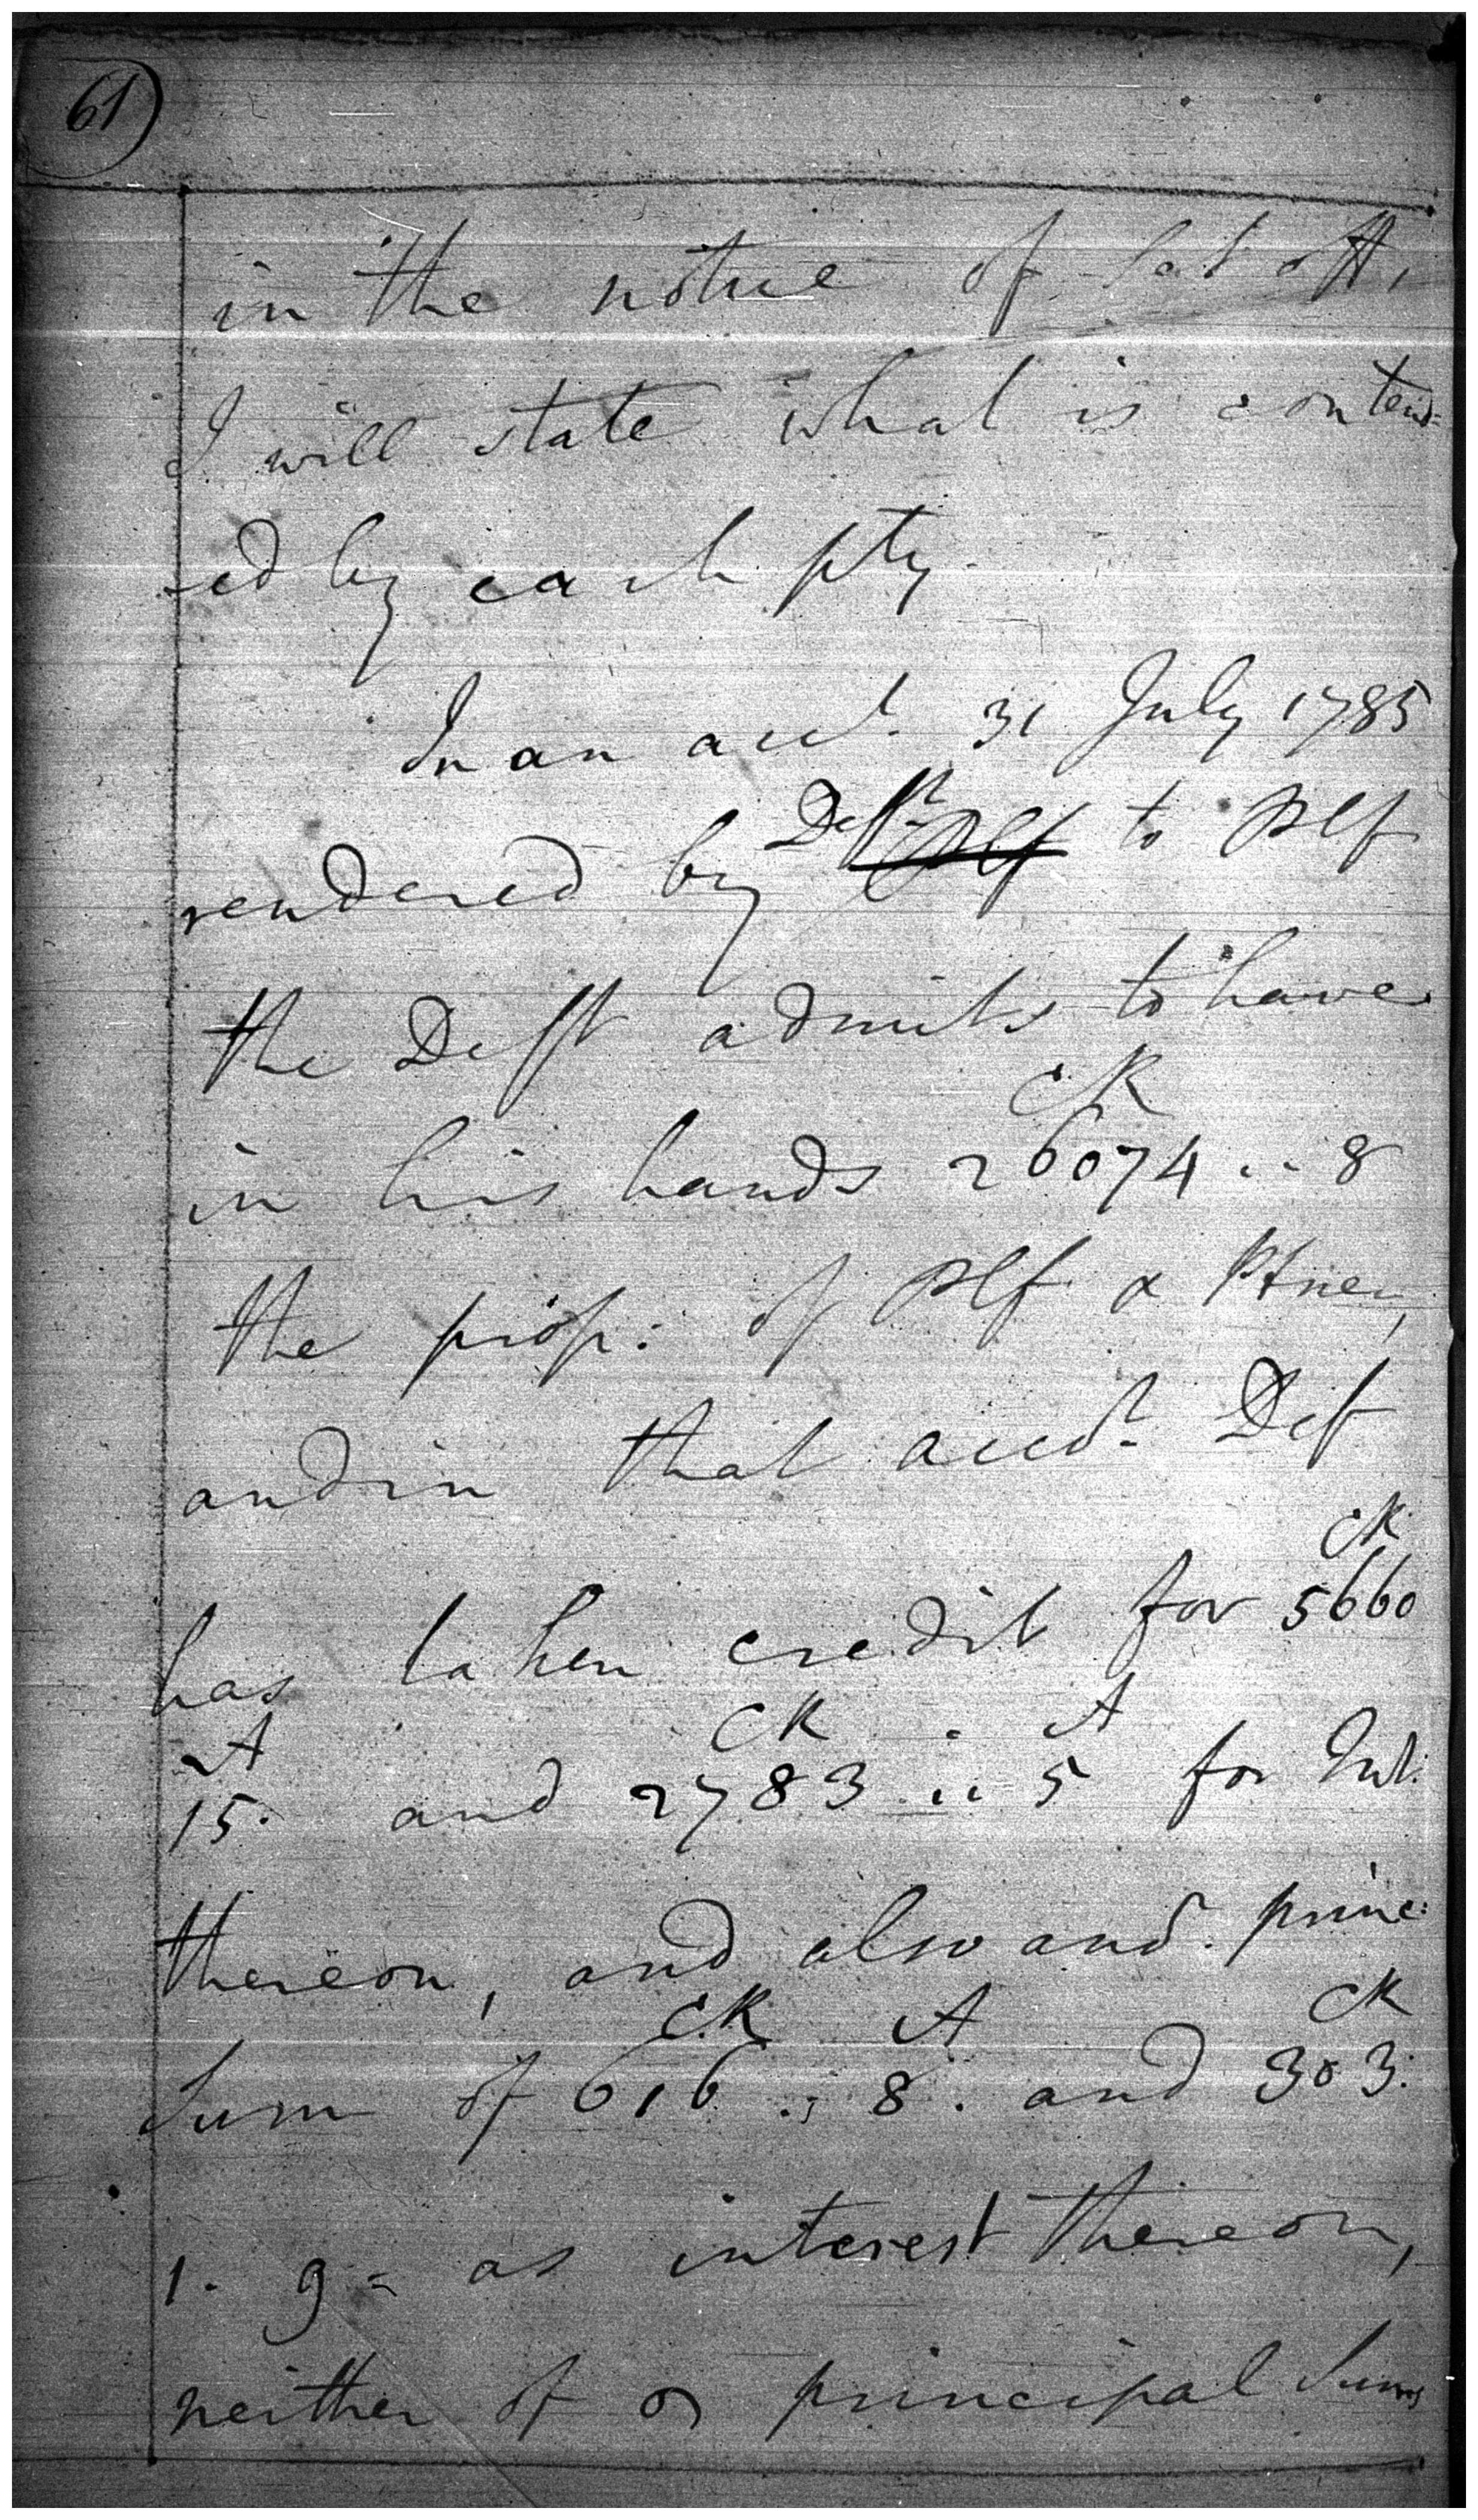 61
in the notice of Set off,
I will state what is contend=
-ed by each pty.
In an acct. 31 July 1785
rendered by Deft Plf to Plf
the Deft admits to have
CR
in his hands 26074 .. 8
the prop: of Plf & Ptner,
and in that accot. Deft
CR
has taken credit for 5660
A CR A
15. and 2783 .. 5 for Int.
thereon, and also anor. princ:
CR A CR
Sum of 616 .. 8. and 303.
1. 9 - as interest thereon,
neither of principal Sums